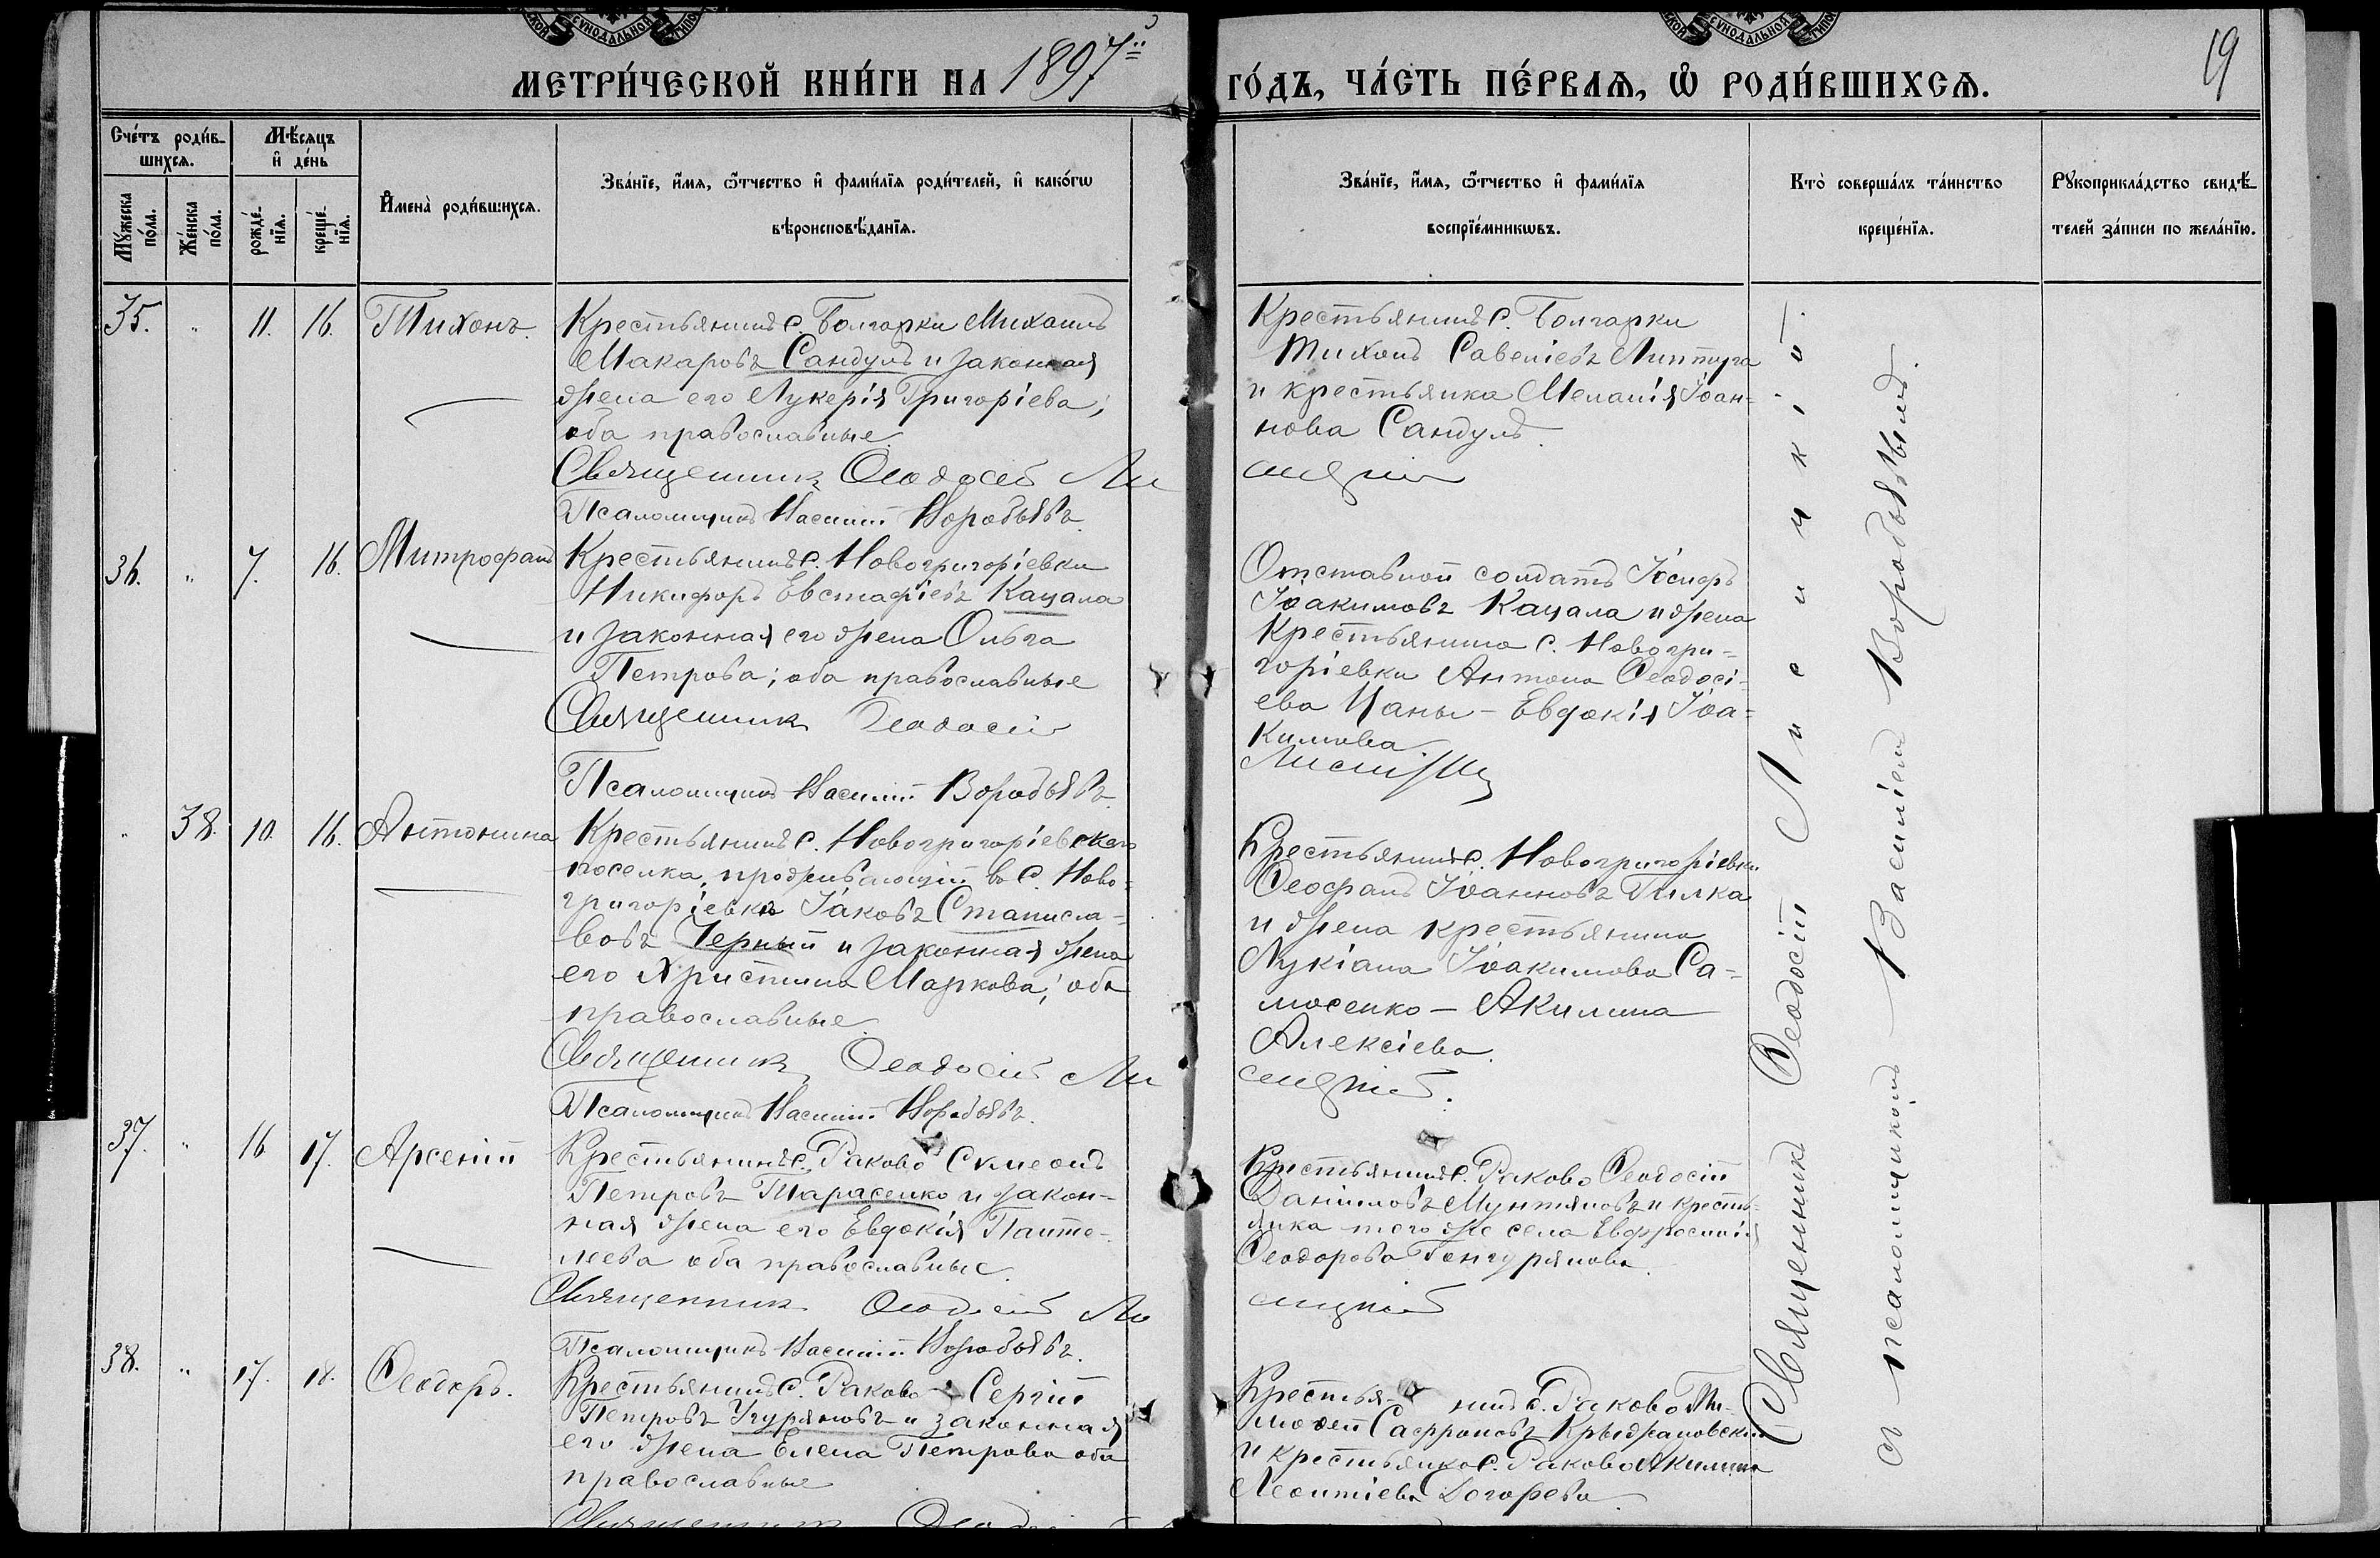 МЕТРИ́ЧЕСКОЙ КНИ́ГИ НА 1897й ГО́ДЪ, ЧА́СТЬ ПЕ́РВАѦ, Ѡ РОДИ́ВШИХСѦ.
19
Сче́тъ роди́в-
шихся.
Мѣ́сяцъ
и де́нь
Му́жеска по́ла.
Же́нска по́ла.
рожде́-нїя.
креще́-нїя.
Имена̀ роди́вшихся.
Зва́нїе, и́мя, ѻ́тчество и фами́лїя роди́телей, и како́гѡ
вѣроисповѣ́данїя.
Зва́нїе, и́мя, ѻ́тчество и фами́лїя
воспрїе́мникѡвъ.
Кто̀ соверша́лъ та́инство
креще́нїя.
Рꙋкоприкла́дство свидѣ́-
телей за́писи по жела́нїю.
35. " 11. 16. Тихонъ.
Крестьянинъ с. Болгарки Михаилъ
Макаровъ Сандулъ и законная
жена его Лукерія Григоріева;
оба православные.
Священникъ Ѳеодосій Ли
Псаломщикъ Василій Воробьевъ.
Крестьянинъ с. Болгарки
Тихонъ Савеліевъ Липтуга
и крестьянка Меланія Іоан-
нова Сандулъ.
36. " 7. 16. Митрофанъ
Крестьянинъ с. Новогригоріевки
Никифоръ Евстафіевъ Кацала
и законная его жена Ольга
Петрова; оба православные
Священникъ Ѳеодосій
Псаломщикъ Василій Воробьевъ.
Отставной солдатъ Іосифъ
Іоакимовъ Кацала и жена
крестьянина с. Новогри-
горіевки Антона Ѳеодосі-
ева Цаны - Евдокія Іоа-
кимова.
" 38. 10. 16. Антонина
Крестьянинъ с. Новогригоріевскаго
поселка, проживающій въ с. Ново-
григоріевкѣ Іаковъ Станисла-
вовъ Черный и законная жена
его Христина Маркова; оба
православные.
Священникъ Ѳеодосій Ли
Псаломщикъ Василій Воробьевъ.
Крестьянинъ с. Новогригоріевки
Ѳеофанъ Іоанновъ Гилка
и жена крестьянина
Лукіана Іоакимова Са-
мосенко - Акилина
Алексіева.
37. " 16 17. Арсеній
Крестьянинъ с. Раково Симеонъ
Петровъ Тарасенко и закон-
ная жена его Евдокія Панте-
леева оба православные.
Священникъ Ѳеодосій Ли
Псаломщикъ Василій Воробьевъ.
Крестьянинъ с. Раково Ѳеодосій
Даниловъ Мунтяновъ и кресть-
янка того же села Евфросинія
Ѳеодорова
38. " 17. 18. Ѳеодоръ.
Крестьянинъ с. Раково Сергій
Петровъ Унгуряновъ и законная
его жена Елена Петрова оба
православные
Священникъ Ѳеодосій
Крестья- нинъ с. Раково Ти-
моѳей Сафроновъ Крыжановскій
и крестьянка с. Раково Акилина
Леонтіева Догорева.
Священникъ Ѳеодосій Лисицкій.
съ псаломщикомъ Василіемъ Воробьевымъ.